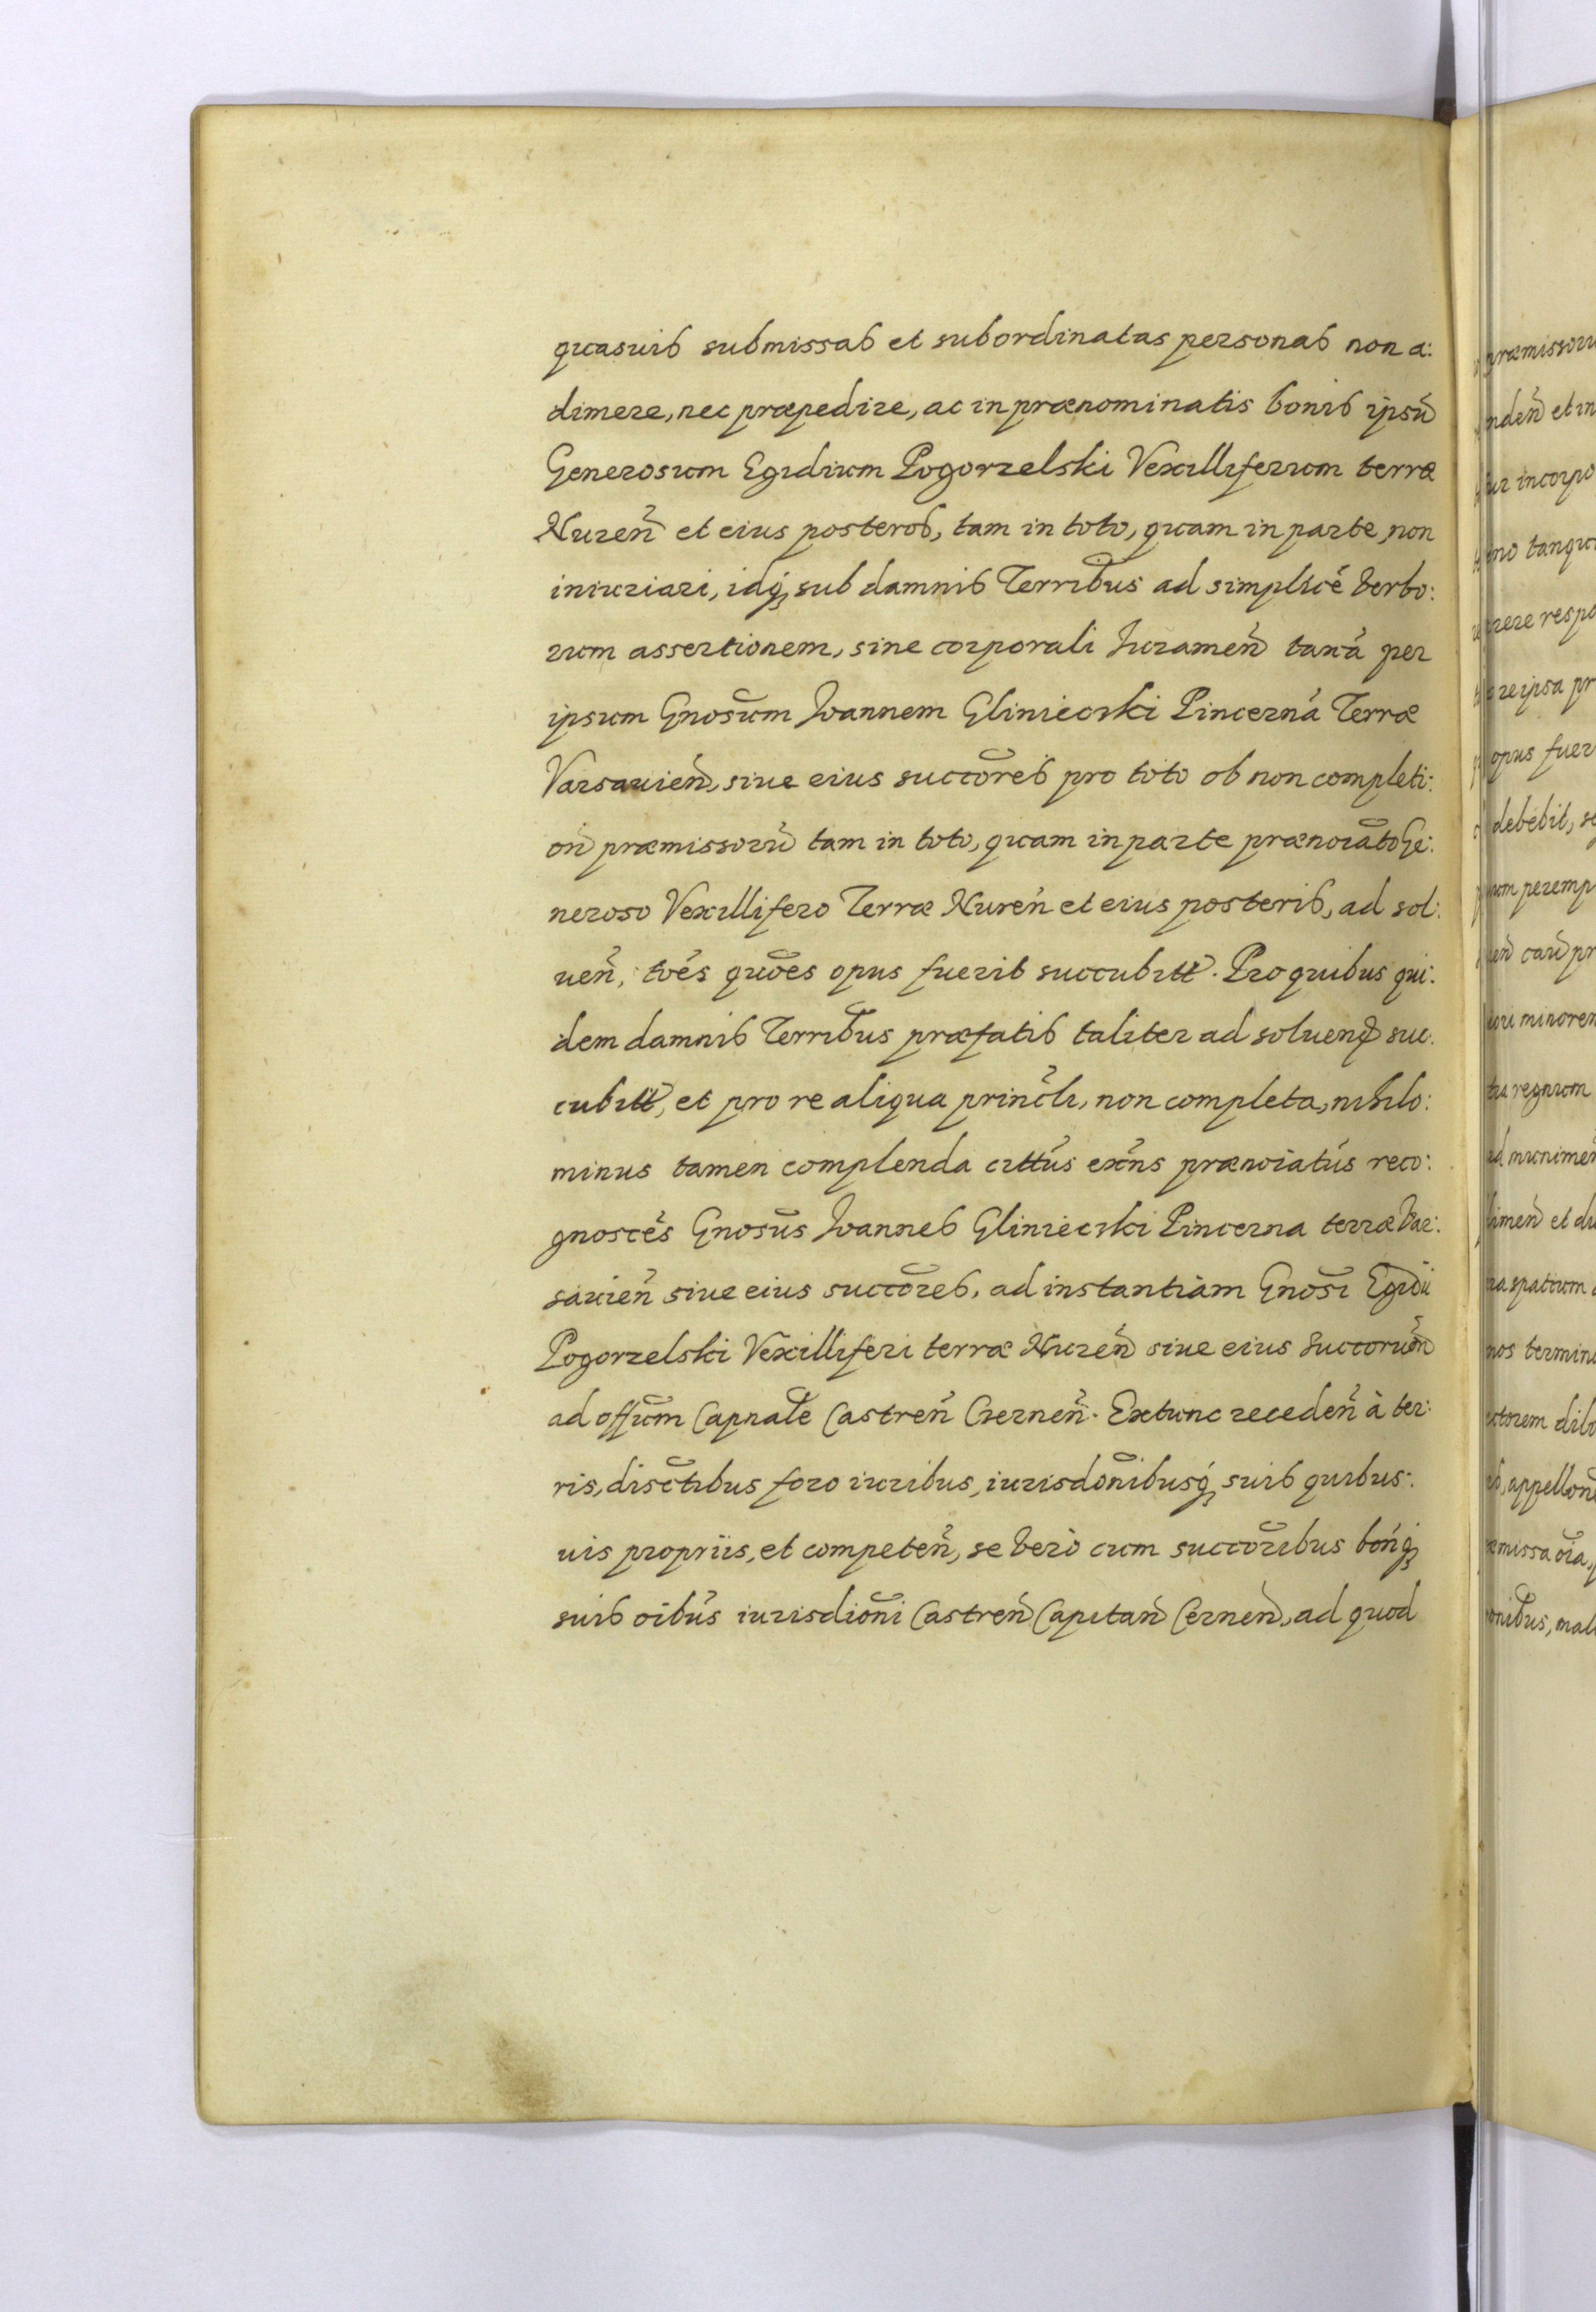 quasuis submissas et subordinatas personas non a:
dimere, nec præpedire, ac in prænominatis bonis ipsũ
Generosum Egidium Pogorzelski Vexilliferum terræ
Nureñ et eius posteros, tam in toto, quam in parte, non
iniuriari, idq́ sub damnis Terribus ad simplicē verbo:
rum assertionem, sine corporali Iurameñ taxā per
ipsum Gnosum Ioannem Glinieczki Pincernā Terræ
Varsauieñ, siue eius succores pro toto ob non completi:
oñ præmissorũ tam in toto, quam in parte prænoiato Ge:
neroso Vexillifero Terræ Nureñ et eius posteris, ad sol:
ueñ, toẽs quoẽs opus fuerit succubitt. Pro quibus qui:
dem damnis Terribus præfatis taliter ad soluend suc:
cubitt, et pro re aliqua princli, non completa, nihilo:
minus tamen complenda cittus exñs prænoiatus reco:
gnoscẽs Gnosus Ioannes Glinieczki Pincerna terræ Var:
sauieñ siue eius succores, ad instantiam Gnosi Egidii
Pogorzelski Vexilliferi terræ Nureñ siue eius succorum
ad offium Capnale Castreñ Czerneñ. Extunc recedeñ à ter:
ris, disctibus foro iuribus, iurisdonibusq́ suis quibus:
uis propriis, et competeñ, se verò cum succoribus bonq́
suis oibus iurisdioni Castreñ Capitañ Cerneñ, ad quod
præmissoru
ndeñ et in
ur incorpo
mo tanqu
rere respo
reipsa pr
opus fuer
debebit, s
um peremp
eñ cau pr
ori minorem
tra regnum
ad munimeñ
limeñ et du
ra spatium
nos termin
ctorem dil
appellon
missa oia,
onibus, mal